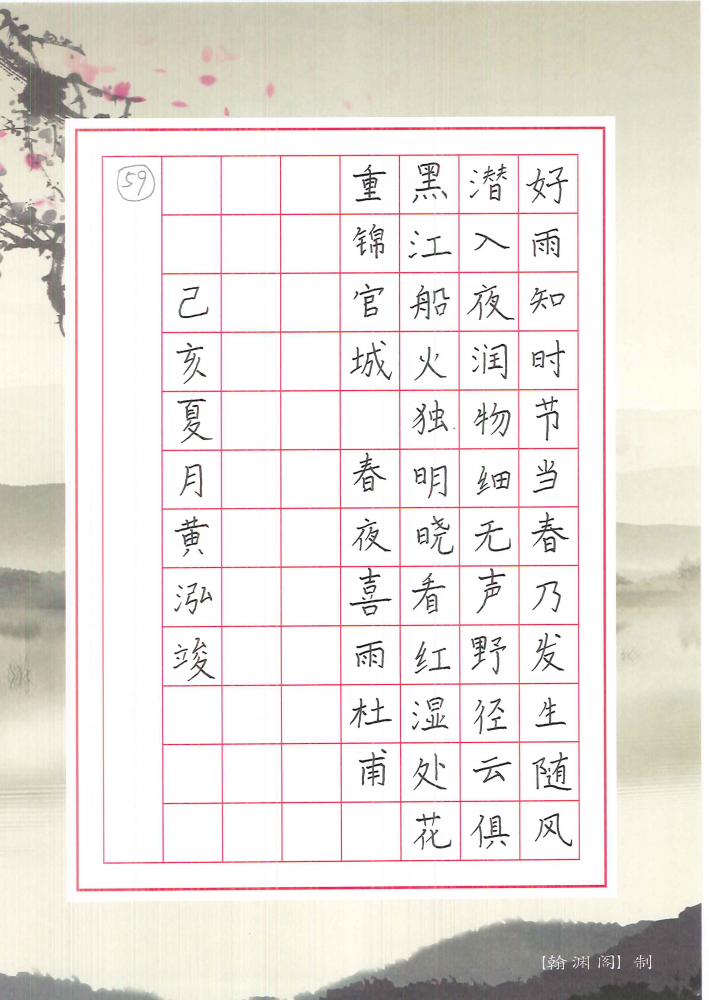 好雨知时节当春乃发生随风
潜入夜润物细无声野径云俱
黑江船火独明晓看红湿处花
重锦官城 春夜喜雨杜甫
己亥夏月黄泓竣
59
【翰渊阁】制